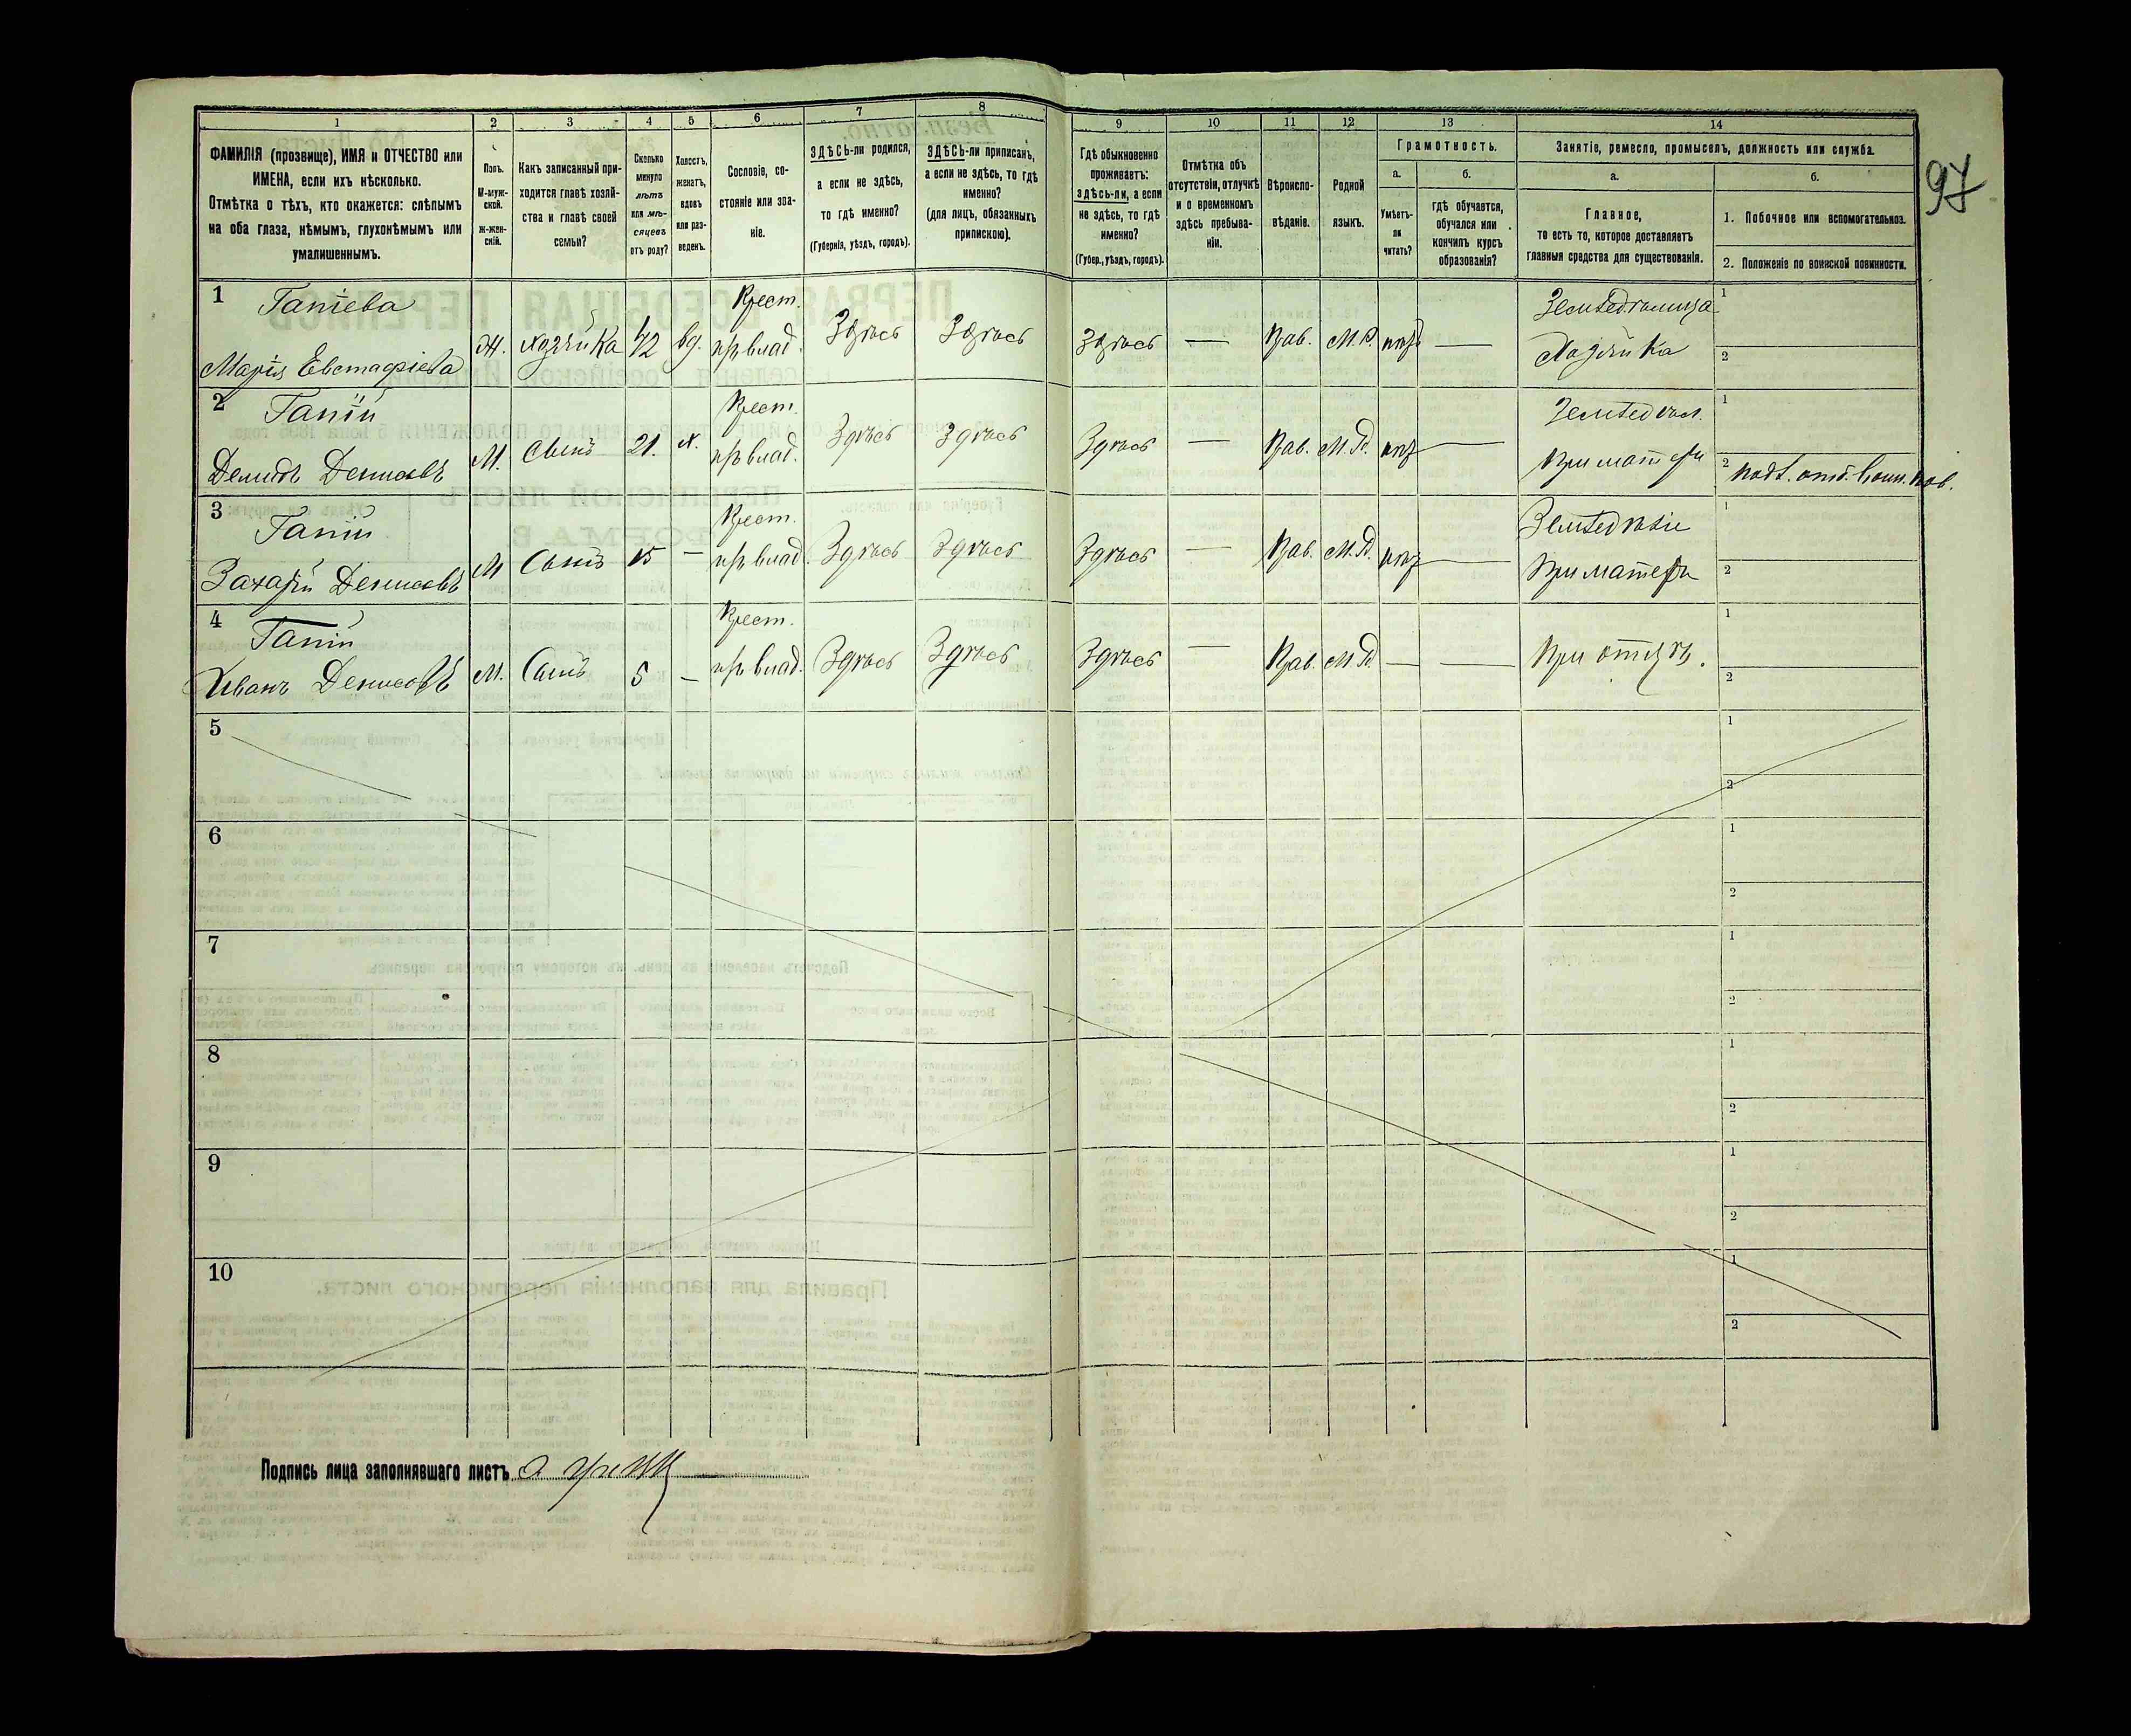 1 2 3 4 5 6 7 8 9 10 11 12 13 14
ФАМИЛІЯ (прозвище), ИМЯ и ОТЧЕСТВО или
ИМЕНА, если ихъ нѣсколько.
Отмѣтка о тѣхъ, кто окажется: слѣпымъ
на оба глаза, нѣмымъ, глухонѣмымъ или
умалишеннымъ.
Полъ.
М-муж-
ской.
Ж-жен-
скій.
Какъ записанный при-
ходится главѣ хозяй-
ства и главѣ своей
семьи?
Сколько
минуло
лѣтъ
или мѣ-
сяцевъ
отъ роду?
Холостъ,
женатъ,
вдовъ
или раз-
веденъ.
Сословіе, со-
стояніе или зва-
ніе.
ЗДѢСЬ-ли родился,
а если не здѣсь,
то гдѣ именно?
(Губернія, уѣздъ, городъ).
ЗДѢСЬ-ли приписанъ,
а если не здѣсь, то гдѣ
именно?
(для лицъ, обязанныхъ
припискою).
Гдѣ обыкновенно
проживаетъ:
здѣсь-ли, а если
не здѣсь, то гдѣ
именно?
(Губер., уѣздъ, городъ).
Отмѣтка объ
отсутствіи, отлучкѣ
и о временномъ
здѣсь пребыва-
ніи.
Вѣроиспо-
вѣданіе.
Родной
языкъ.
Грамотность.
а.
Умѣетъ-
ли
читать?
б.
гдѣ обучается,
обучался или
кончилъ курсъ
образованія?
Занятіе, ремесло, промыселъ, должность или служба.
а.
Главное,
то есть то, которое доставляетъ
главныя средства для существованія.
б.
1. Побочное или вспомогательное.
2. Положеніе по воинской повинности.
97
1 Гапіева Крест. Земледѣлица 1
Марія Евстафіева Ж. хозяйка 42 вд. Здѣсь Здѣсь Здѣсь — Прав. М.Р. — Хозяйка 2
2 Гапій Крест. 1
Демидъ Денисовъ М. Сынъ 21. х. Здѣсь Здѣсь Здѣсь — Прав. М.Р. — При матери 2
3 Гапій Крест. Земледѣліе 1
Захарій Денисовъ М Сынъ 15 — Здѣсь Здѣсь Здѣсь — Прав. М.Р. — При матери 2
4 Гапій Крест. 1
Иванъ Денисовъ М. Сынъ 5 — Здѣсь Здѣсь Здѣсь — Прав. М.Р. — — При отцѣ. 2
5 1
2
6 1
2
7 1
2
8 1
2
9 1
2
10 1
2
Подпись лица заполнявшаго листъ